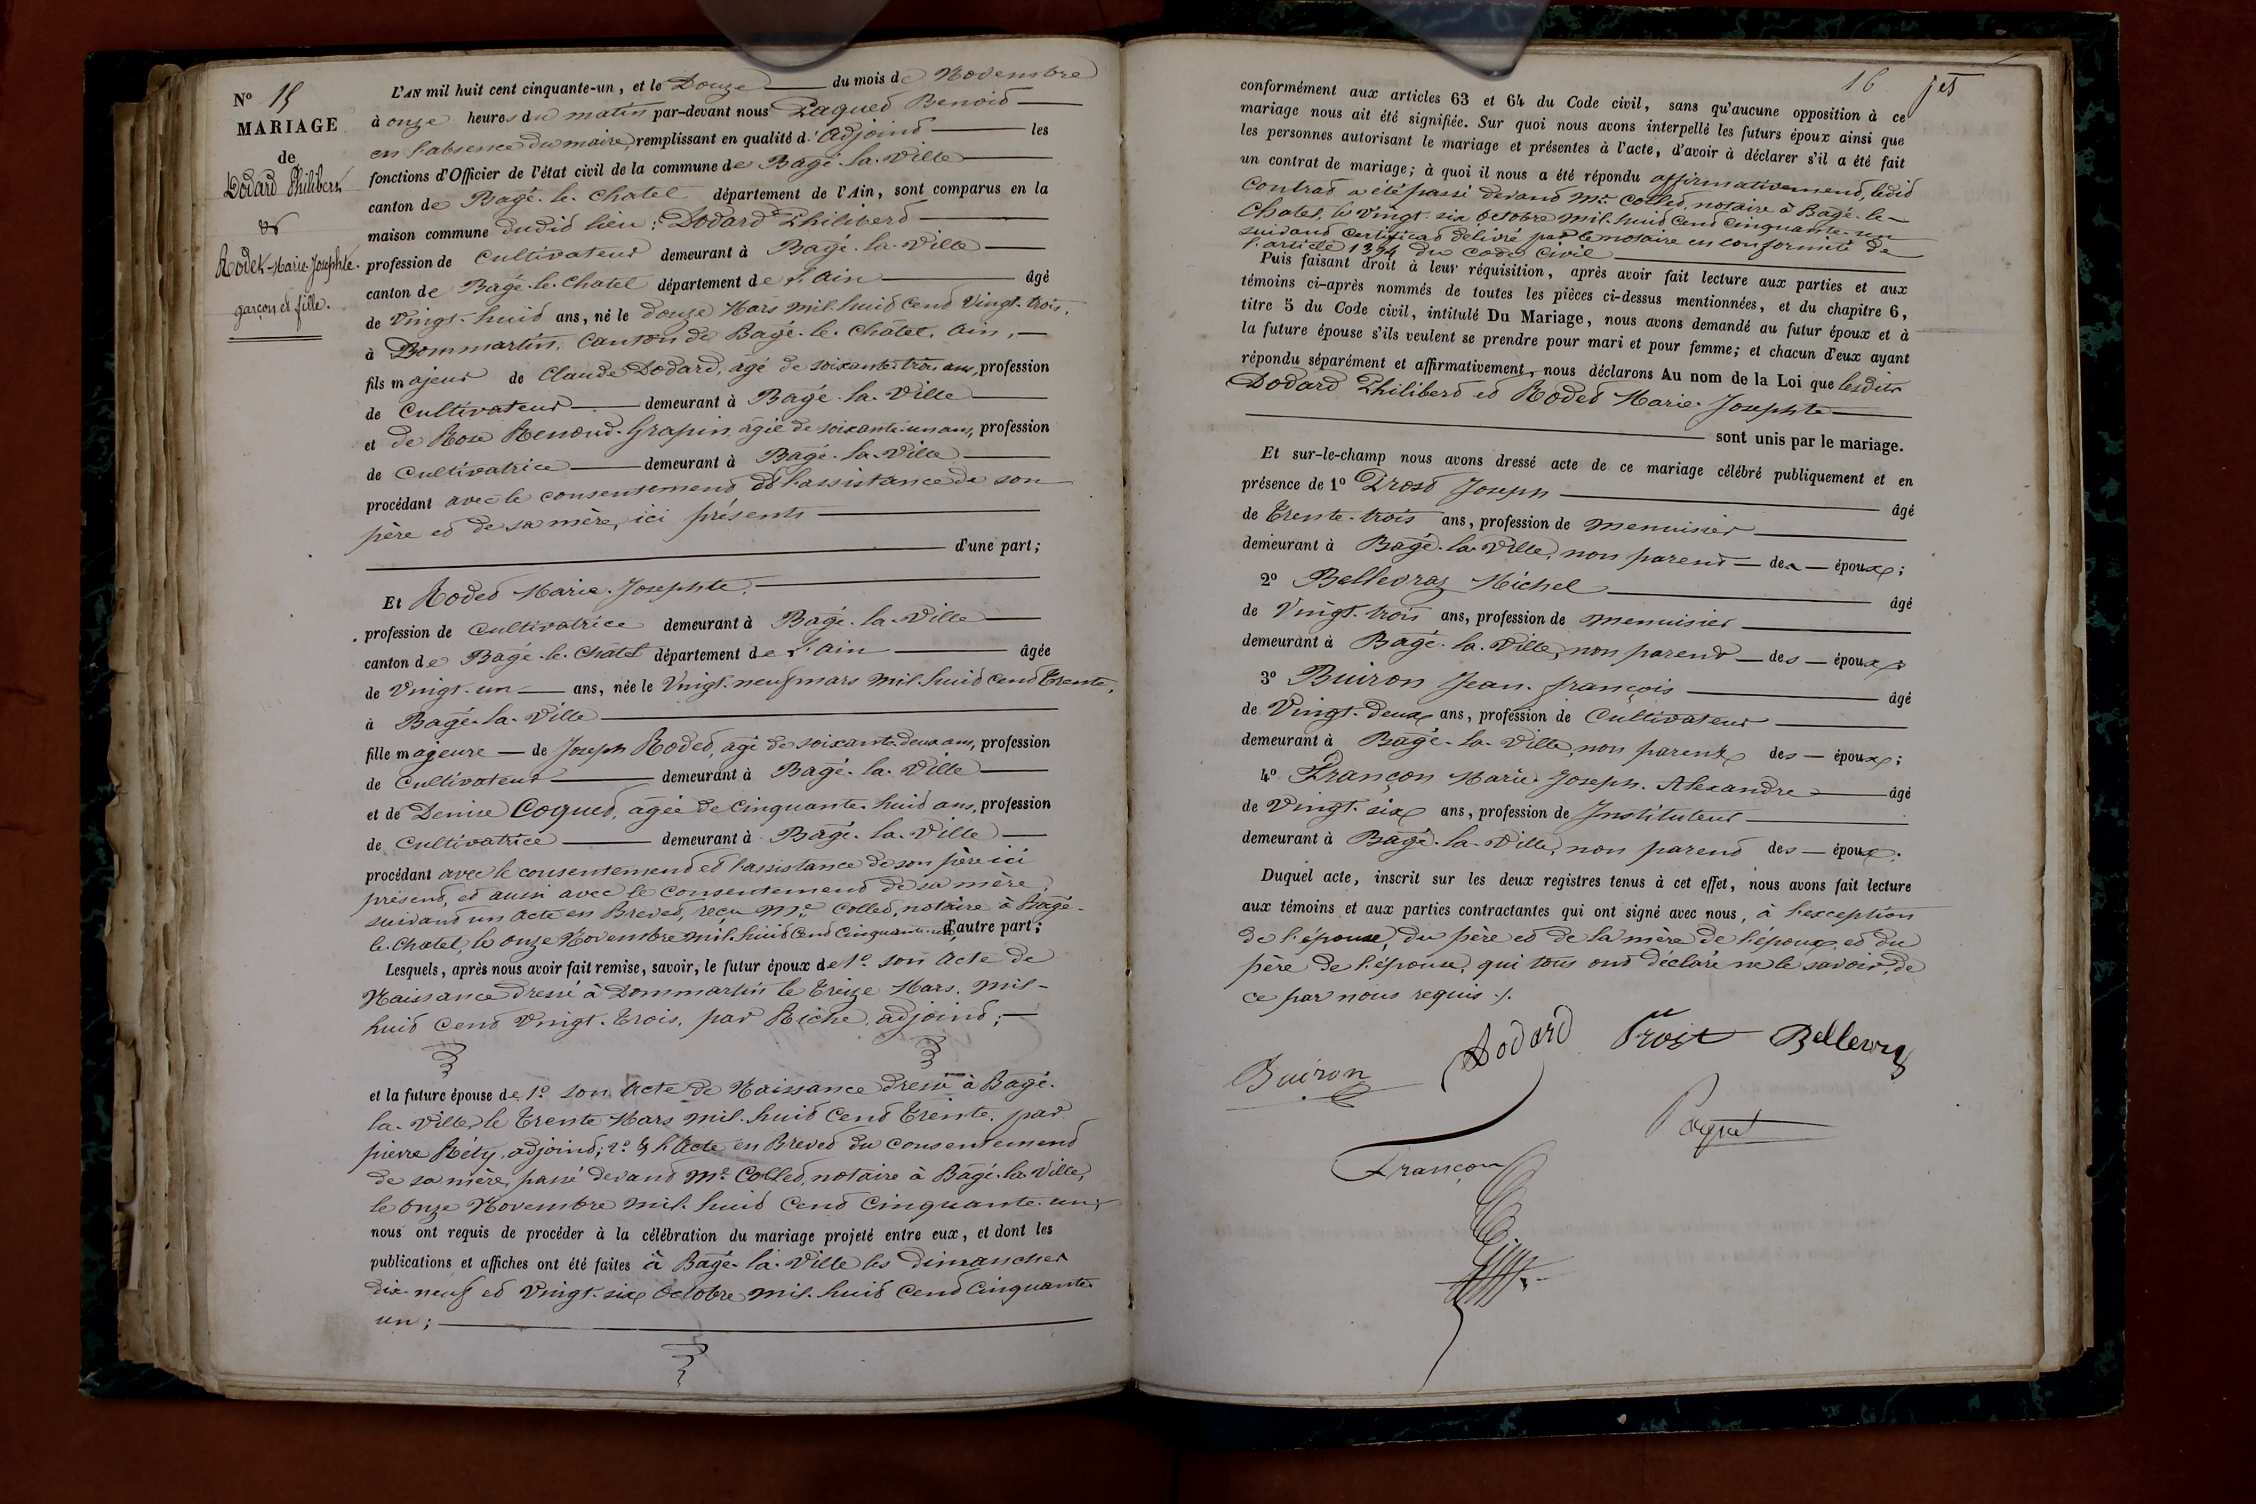 N° 15
MARIAGE
de
Dodard Philibert
et
Rodet Marie Josephte.
garçon et fille.
L'AN mil huit cent cinquante-un, et le Douze du mois de Novembre
à onze heures du matin par-devant nous Paquet Benoit
en l'absence du maire, remplissant en qualité d'adjoint les
fonctions d'Officier de l'état civil de la commune de Bagé-la-Ville
canton de Bagé-le-Chatel département de l'Ain, sont comparus en la
maison commune dudit lieu : Dodard Philibert
profession de Cultivateur demeurant à Bagé-la-Ville
canton de Bagé-le-Chatel département de l'Ain âgé
de Vingt-huit ans, né le douze Mars mil-huit cent Vingt-trois,
à Dommartin, Canton de Bagé-le-Châtel, Ain,
fils majeur de Claude Dodard, agé de soixante-trois ans, profession
de Cultivateur demeurant à Bagé-la-Ville
et de Rose Renoud-Grapin, âgée de soixante-un ans, profession
de Cultivatrice demeurant à Bagé-la-Ville
procédant avec le consentement et l'assistance de son
père et de sa mère, ici présents
d'une part;
Et Rodet Marie-Josephte,
profession de Cultivatrice demeurant à Bagé-la-Ville
canton de Bagé-le-Chatel département de l'Ain âgée
de Vingt-un ans, née le Vingt-neuf mars mil-huit cent Trente,
à Bagé-la-Ville
fille majeure de Joseph Rodet, agé de soixante-deux ans, profession
de Cultivateur demeurant à Bagé-la-Ville
et de Denise Coquet, âgée de Cinquante-huit ans, profession
de Cultivatrice demeurant à Bagé-la-Ville
procédant avec le consentement et l'assistance de son père ici
présent, et aussi avec le consentement de sa mère,
suivant un Acte en Brevet, reçu Me Collet, notaire à Bagé-
le-Chatel, le onze Novembre mil-huit cent Cinquante-un, d'autre part;
Lesquels, après nous avoir fait remise, savoir, le futur époux de 1° son Acte de
Naissance dressé à Dommartin le Treize Mars, mil-
huit Cent Vingt-Trois, par Riche, adjoint;
et la future épouse de 1° son Acte de Naissance dressé à Bagé-
la-Ville, le Trente Mars mil-huit Cent Trente, par
pierre Réty, adjoint; 2° l'Acte en Brevet du Consentement
de sa mère, passé devant Me Collet, notaire à Bagé-la-Ville,
le onze Novembre mil-huit Cent Cinquante-un,
nous ont requis de procéder à la célébration du mariage projeté entre eux, et dont les
publications et affiches ont été faites à Bagé-la-Ville les dimanches
dix-neuf et Vingt-six Octobre mil-huit Cent Cinquante-
un;
16 jet
conformément aux articles 63 et 64 du Code civil, sans qu'aucune opposition à ce
mariage nous ait été signifiée. Sur quoi nous avons interpellé les futurs époux ainsi que
les personnes autorisant le mariage et présentes à l'acte, d'avoir à déclarer s'il a été fait
un contrat de mariage; à quoi il nous a été répondu affirmativement, ledit
Contrat a été passé devant Me Collet, notaire à Bagé-le-
Chatel, le Vingt-six Octobre mil-huit Cent Cinquante-un
suivant Certificat délivré par le notaire en conformité de
l'article 1394 du Code Civil
Puis faisant droit à leur réquisition, après avoir fait lecture aux parties et aux
témoins ci-après nommés de toutes les pièces ci-dessus mentionnées, et du chapitre 6,
titre 5 du Code civil, intitulé Du Mariage, nous avons demandé au futur époux et à
la future épouse s'ils veulent se prendre pour mari et pour femme; et chacun d'eux ayant
répondu séparément et affirmativement, nous déclarons Au nom de la Loi que lesdits
Dodard Philibert et Rodet Marie-Josephte
sont unis par le mariage.
Et sur-le-champ nous avons dressé acte de ce mariage célébré publiquement et en
présence de 1° Prost Joseph âgé
de Trente-trois ans, profession de menuisier
demeurant à Bagé-la-Ville, non parent des époux;
2° Bellevraz Michel âgé
de Vingt-trois ans, profession de menuisier
demeurant à Bagé-la-Ville, non parent des époux;
3° Buiron Jean-françois âgé
de Vingt-deux ans, profession de Cultivateur
demeurant à Bagé-la-Ville, non parent des époux;
4° Françon Marie-Joseph-Alexandre âgé
de Vingt-six ans, profession de Instituteur
demeurant à Bagé-la-Ville, non parent des époux.
Duquel acte, inscrit sur les deux registres tenus à cet effet, nous avons fait lecture
aux témoins et aux parties contractantes qui ont signé avec nous, à l'exception
de l'épouse, du père et de la mère de l'époux, et du
père de l'épouse, qui tous ont déclaré ne le savoir, de
ce par nous requis.
Buiron Dodard Prost Bellevraz
Paquet
Françon